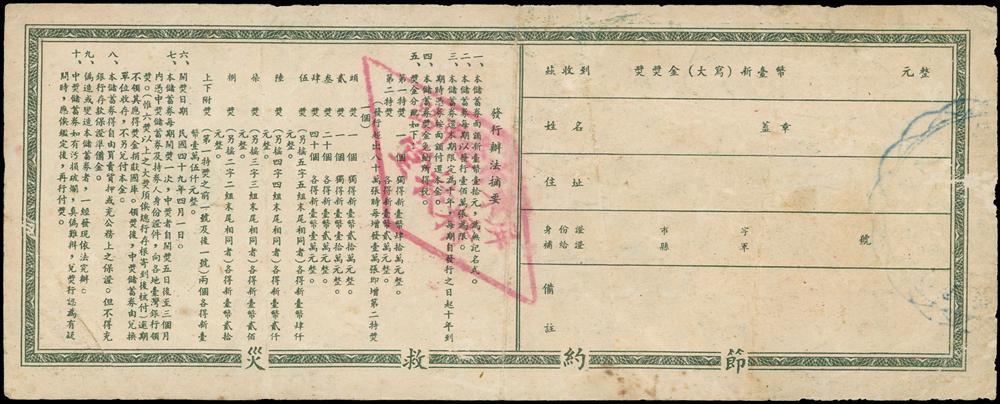 茲收到獎券獎金(大寫)新臺幣 元整
姓名 蓋章
住址
身份證 市 字
補給證 縣 軍 號
備註
發行辦法摘要
一、本儲蓄券面額新臺幣壹拾元,為無記名式。
二、本儲蓄券每期以發行壹佰萬張為限。
三、本儲蓄券還本期限定為十年,每期自發行之日起十年到
期時憑券按面額付還本金。
四、本儲蓄券獎金免納所得稅。
五、獎金分配如下:
第一特獎 一個 獨得新臺幣肆拾萬元整。
第二特獎 各得新臺幣貳萬元整。
(發行超出八十萬張時每增發壹萬張即增第二特獎
一個)
頭獎 一個 獨得新臺幣貳拾萬元整。
貳獎 一個 獨得新臺幣
叁獎 二十個 各得新臺幣貳萬元整。
肆獎 四十個 各得新臺幣壹萬元整。
伍獎 (另搖五字五組末尾相同者)各得新臺幣肆仟
元整。
陸獎 (另搖四字四組末尾相同者)各得新臺幣貳仟
元整。
柒獎 (另搖三字三組末尾相同者)各得新臺幣貳佰
元整。
捌獎 (另搖二字二組末尾相同者)各得新臺幣貳拾
元整。
上下附獎 (第一特獎之前一號及後一號)兩個各得新臺
幣壹萬伍仟元整。
六、開獎日期 民國四十九年四月一日。
七、本儲蓄券每期開獎一次,中獎者自開獎五日後至三個月
內憑中獎儲蓄券及持券人身份證件,向各地臺灣銀行領
獎。(惟六獎以上之大獎須俟總行存根寄到後核付)逾期
不領其應得獎金捐獻國庫。領獎後,中獎儲蓄券由兌換
單位收存,不另兌付本金。
八、本儲蓄券得自由買賣質押或充公務上之保證。但不得充
銀行存款保證準備金。
九、偽造或變造本儲蓄券者,一經發現依法究辦。
十、中獎儲蓄券如有污損破爛,真偽難辨,兌獎行認為有疑
問時,應俟鑑定後,再行付獎。
節約救災